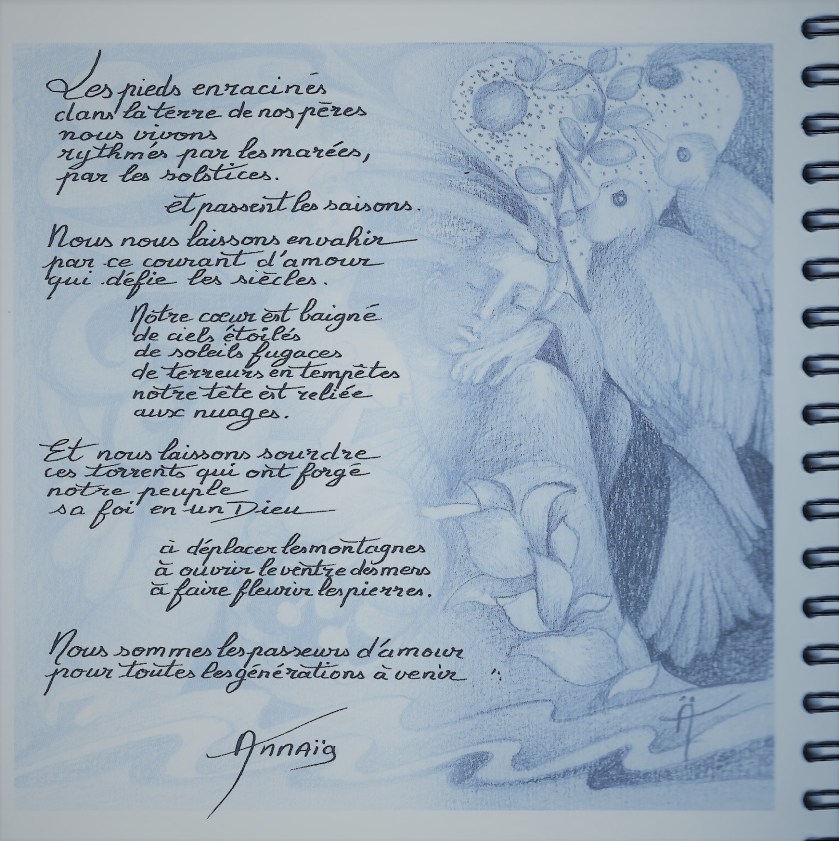 Les pieds enracinés
dans la terre de nos pères
nous vivons
rythmés par les marées,
par les solstices.
et passent les saisons.
Nous nous laissons envahir
par ce courant d'amour
qui défie les siècles.
Notre cœur est baigné
de ciels étoilés
de soleils fugaces
de terreurs en tempêtes
notre tête est reliée
aux nuages.
Et nous laissons sourdre
ces torrents qui ont forgé
notre peuple
sa foi en un Dieu
à déplacer les montagnes
à ouvrir le ventre des mers
à faire fleurir les pierres.
Nous sommes les passeurs d'amour
pour toutes les générations à venir
Annaïg
Ä